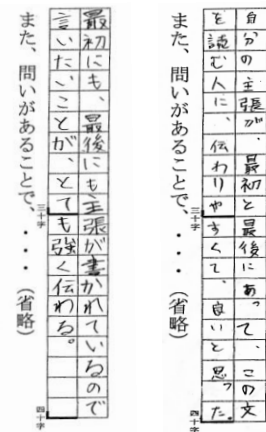 自分の主張が、最初と最後にあって、この文
を読む人に、伝わりやすくて、良いと思った。
三十字
四十字
また、問いがあることで、・・・（省略）
最初にも、最後にも主張が書かれているので
言いたいことが、とても強く伝わる。
三十字
四十字
また、問いがあることで、・・・（省略）